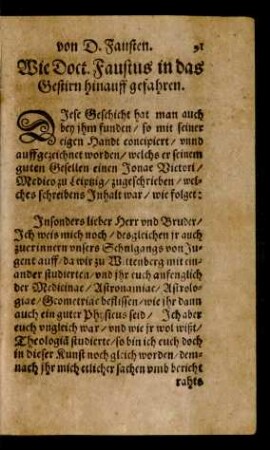 von D. Fausten. 91
Wie Doct. Faustus in das
Gestirn hinauff gefahren.
DIese Geschicht hat man auch
bey jhm funden / so mit seiner
eigen Handt concipiert / vnnd
auffgezeichnet worden / welchs er seinem
guten Gesellen einen Jonae Victori /
Medico zu Leipzig / zugeschrieben / wel-
ches schreibens Inhalt war / wie folget:
Insonders lieber Herr vnd Bruder /
Ich weis mich noch / desgleichen jr auch
zuerinnern vnsers Schulgangs von Ju-
gent auff / da wir zu Wittenberg mit ein-
ander studierten / vnd jhr euch anfenglich
der Medicinae / Astronamiae / Astrolo-
giae / Geometriae beflissen / wie jhr dann
auch ein guter Physicus seid / Ich aber
euch vngleich war / vnd wie jr wol wißt /
Theologiā studierte / so bin ich euch doch
in dieser Kunst noch gleich worden / dem-
nach jhr mich etlicher sachen vmb bericht
rahts